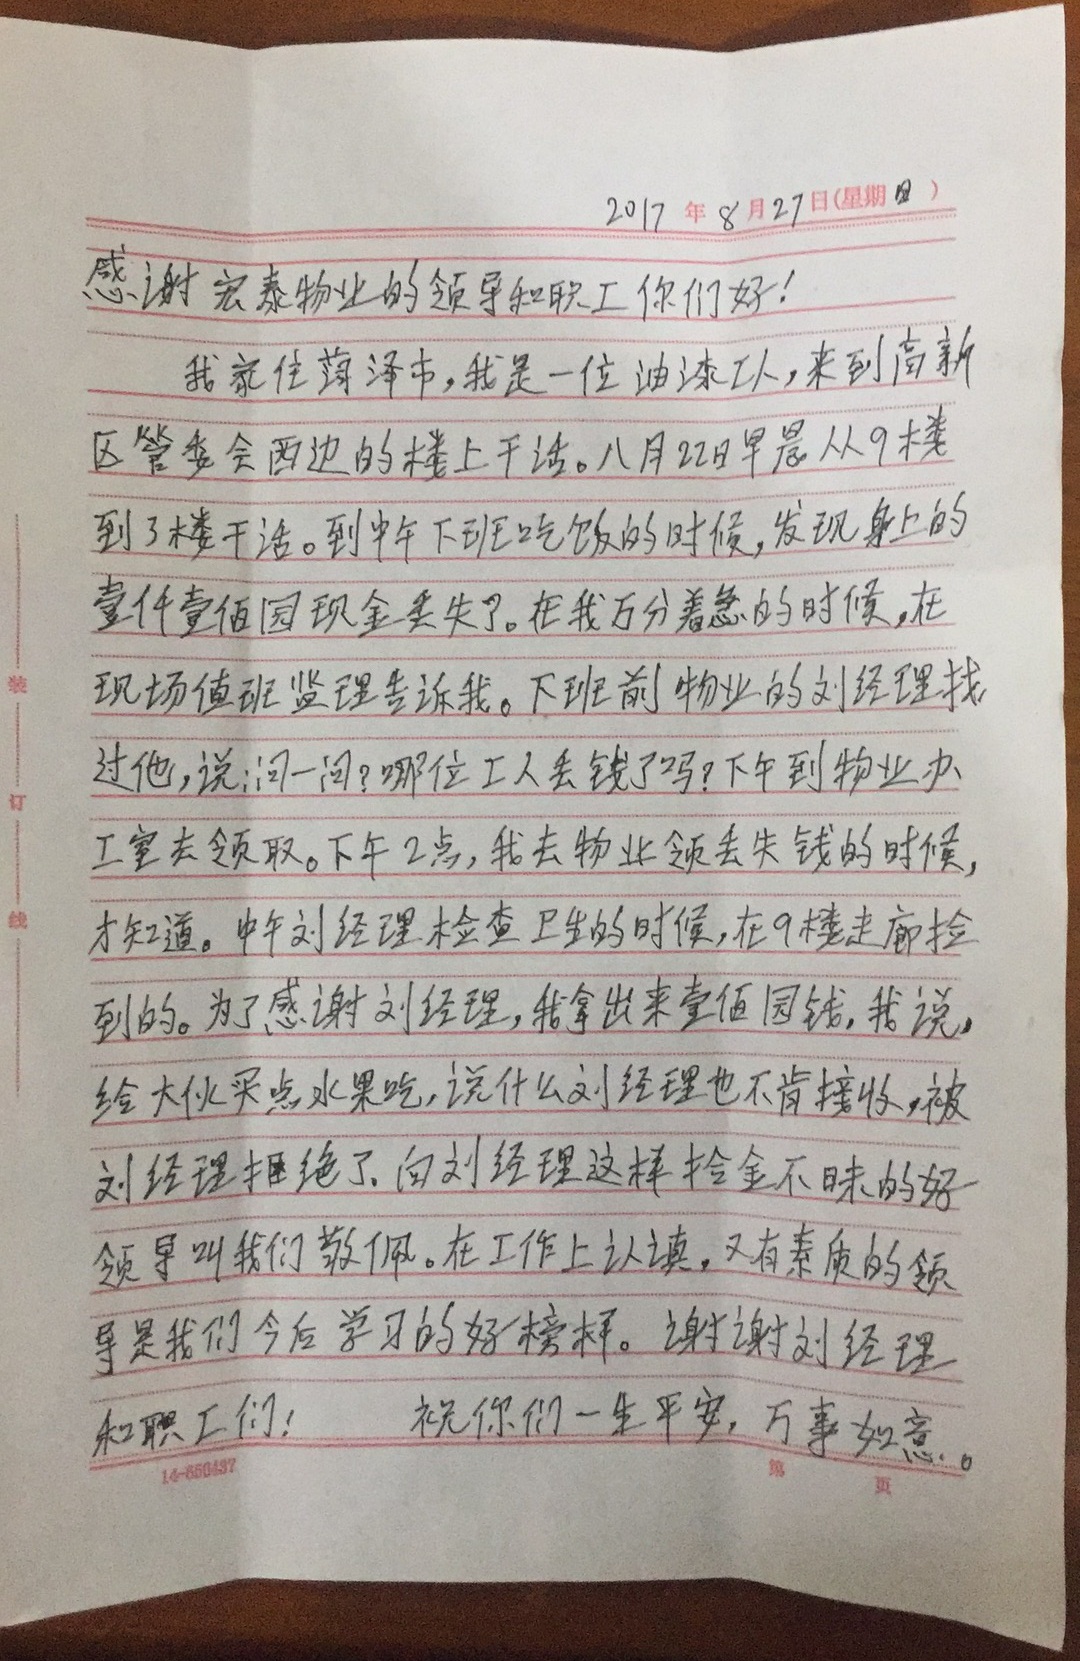 2017年8月27日(星期日)
感谢宏泰物业的领导和职工你们好!
我家住菏泽市,我是一位油漆工人,来到高新
区管委会西边的楼上干活。八月22日早晨从9楼
到3楼干活。到中午下班吃饭的时候,发现身上的
壹仟壹佰园现金丢失了。在我万分着急的时候,在
现场值班监理告诉我。下班前物业的刘经理找
过他,说:问一问?哪位工人丢钱了吗?下午到物业办
工室去领取。下午2点,我去物业领丢失钱的时候,
才知道。中午刘经理检查卫生的时候,在9楼走廊捡
到的。为了感谢刘经理,我拿出来壹佰园钱,我说,
给大伙买点水果吃,说什么刘经理也不肯接收,被
刘经理拒绝了、向刘经理这样拾金不昧的好
领导叫我们敬佩。在工作上认真,又有素质的领
导是我们今后学习的好榜样。谢谢刘经理
和职工们! 祝你们一生平安,万事如意。
14-650437 第 页
装订线